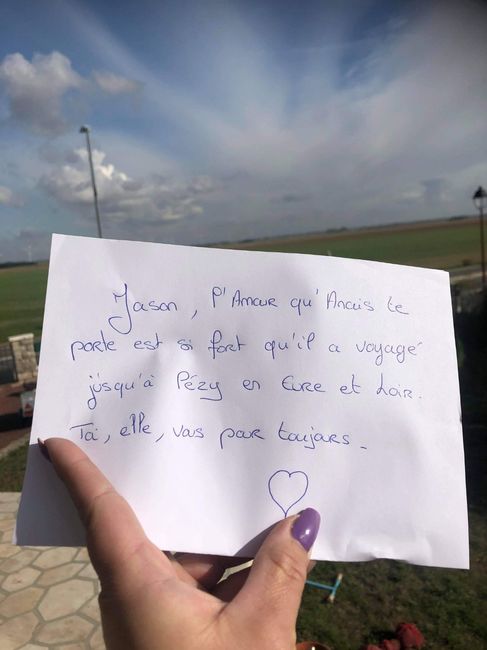 Jason, l'Amour qu'Anais te
porte est si fort qu'il a voyagé
jusqu'à Pézy en Eure et Loir.
Toi, elle, vous pour toujours _